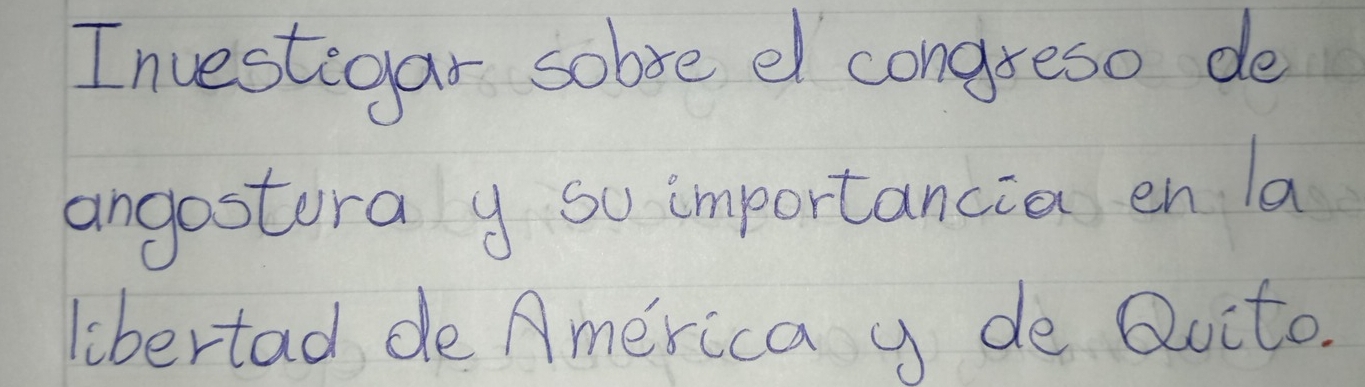 Investigar sobre el congreso de
angostura y su importancia en la
libertad de América y de Quito.